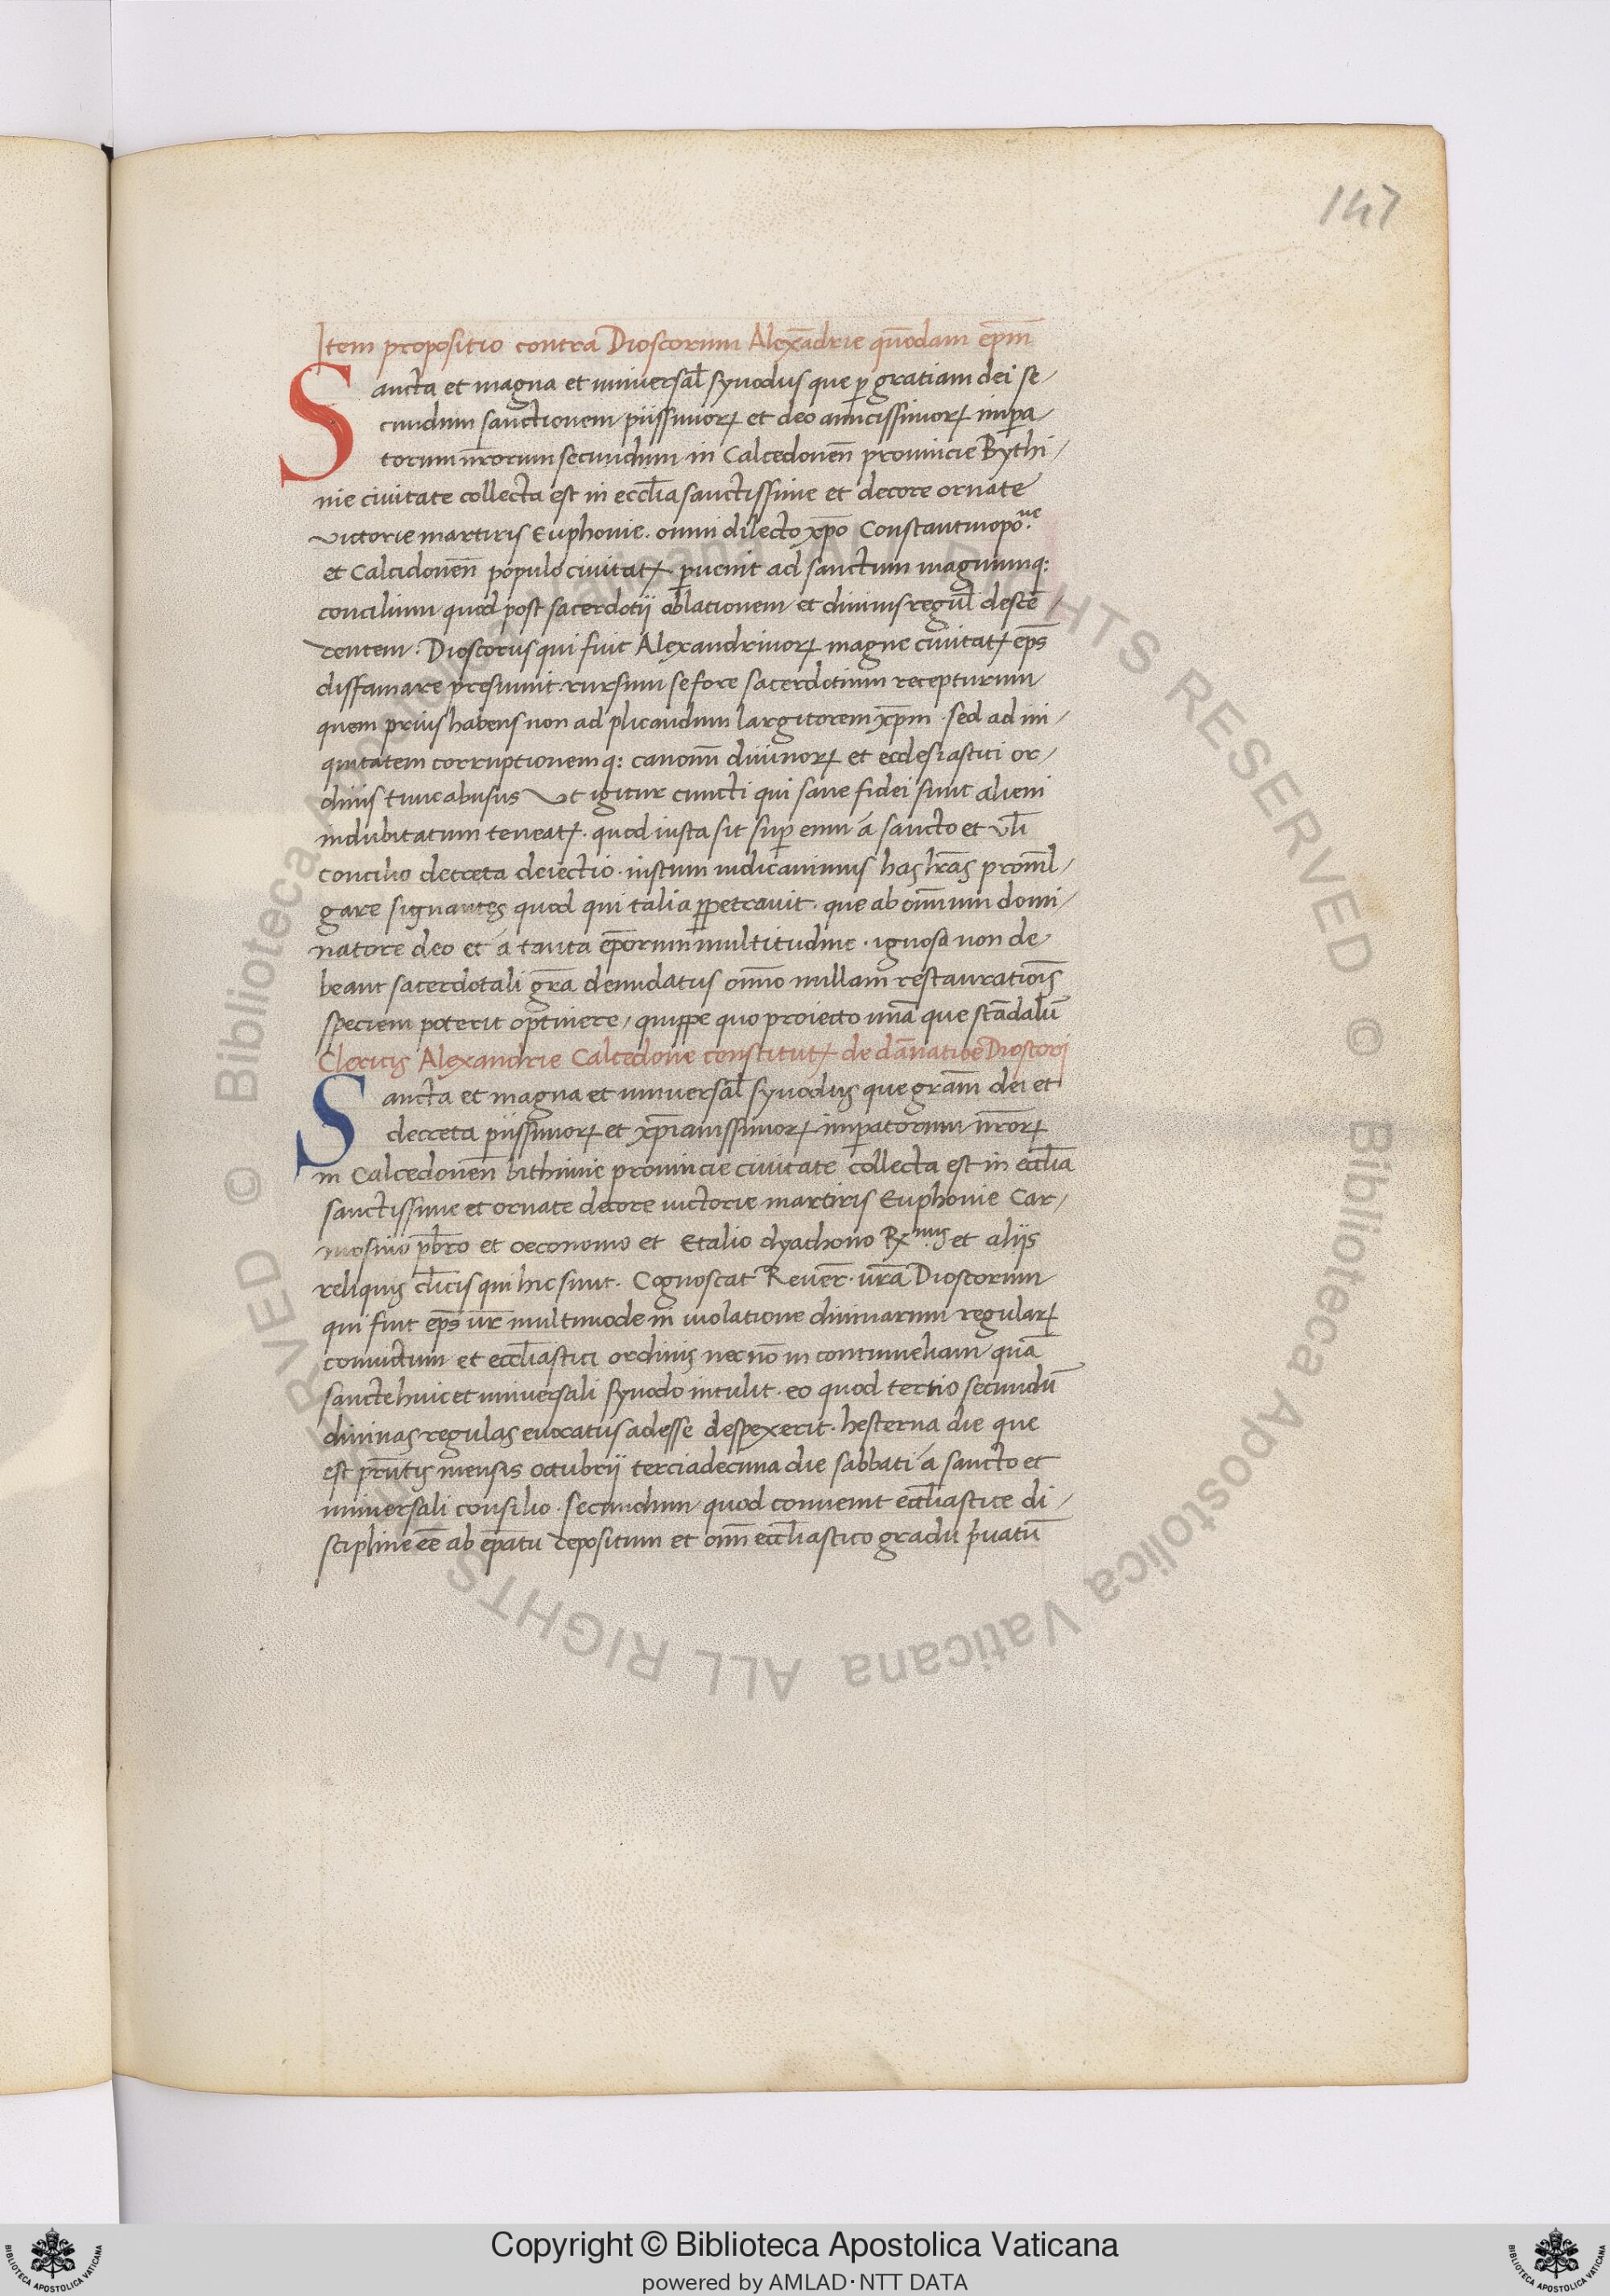 147
Item propositio contra Dioscorum Alexa̅drie que̅dam ep̅m
Sancta et magna et universal̅ synodus que ꝑ gratiam dei se/
cundum sanctionem piissimoꝝ et deo amicissimoꝝ imꝑa/
torum nr̅orum secundum in Calcedonen̅ provincie Bythi/
nie civitate collecta est in eccl̅ia sanctissime et decore ornate
victorie martiris Euphonie. omni dilecto xp̅o Constantinopo.ne
et Calcidonen̅ populo civitatꝭ. ꝑvenit ad sanctum magnumq:
concilium quod post sacerdotij oblationem et divinis regul̅ desce̅/
dentem. Dioscorus qui fuit Alexandrinoꝝ magne civitatꝭ ep̅s
diffamare presumit. rursum se fore sacerdotium recepturum
quem prius habens non ad plicandum largitorem xp̅m. sed ad ini/
quitatem corruptionemq: canonu̅ divinoꝝ et ecclesiastici or/
dinis tunc abusus Ut igitur cuncti qui sane fidei sunt alieni
indubitatum teneatꝭ. quod iusta sit suꝑ eum á sancto et vl̅i
concilio decreta deiectio. iustum iudicavimus has lr̅as prom̅l/
gare signantes quod qui talia ꝑpetravit. que ab omn̅ium domi/
natore deo et á tanta ep̅orum multitudine. ignosa non de
beant sacerdotali gr̅a denudatus omn̅o nullam restauratio̅is
speciem poterit optinere, quippe quo proiecto una̅ que sca̅dalu̅
Clericis Alexandrie Calcedone constitutꝭ de da̅natio̅e Dioscorj
Sancta et magna et universal̅ synodus que gra̅m dei et
decreta piissimoꝝ et xp̅ianissimoꝝ imꝑatorum nr̅oꝝ
in Calcedonen̅ bithinie provincie civitate collecta est in eccl̅ia
sanctissime et ornate decore victorie martiris Euphonie Car/
mosino pb̅ro et oeconomo et Etalio dyachono Rx.mis et aliis
reliquis cl̅icis qui hic sunt. Cognoscat Rever̅. vr̅a Dioscorum
qui fuit ep̅s vr̅ multimode in violatione divinarum regulaꝝ
convictum et eccl̅iastici ordinis necno̅ in contumeliam qua̅
sancte huic et universali synodo intulit. eo quod tertio secundu̅
divinas regulas evocatus adesse despexerit. hesterna die que
est prn̅tis mensis octubrij terciadecima die sabbati á sancto et
universali consilio. secundum quod convenit eccl̅iastice di/
scipline ee̅ ab ep̅atu depositum et omn̅ eccl̅iastico gradu p̅vatu̅
© Biblioteca Apostolica Vaticana ALL RIGHTS RESERVED © Biblioteca Apostolica Vaticana ALL RIGHTS RESERVED
Copyright © Biblioteca Apostolica Vaticana
powered by AMLAD·NTT DATA
BIBLIOTECA APOSTOLICA VATICANA
BIBLIOTECA APOSTOLICA VATICANA